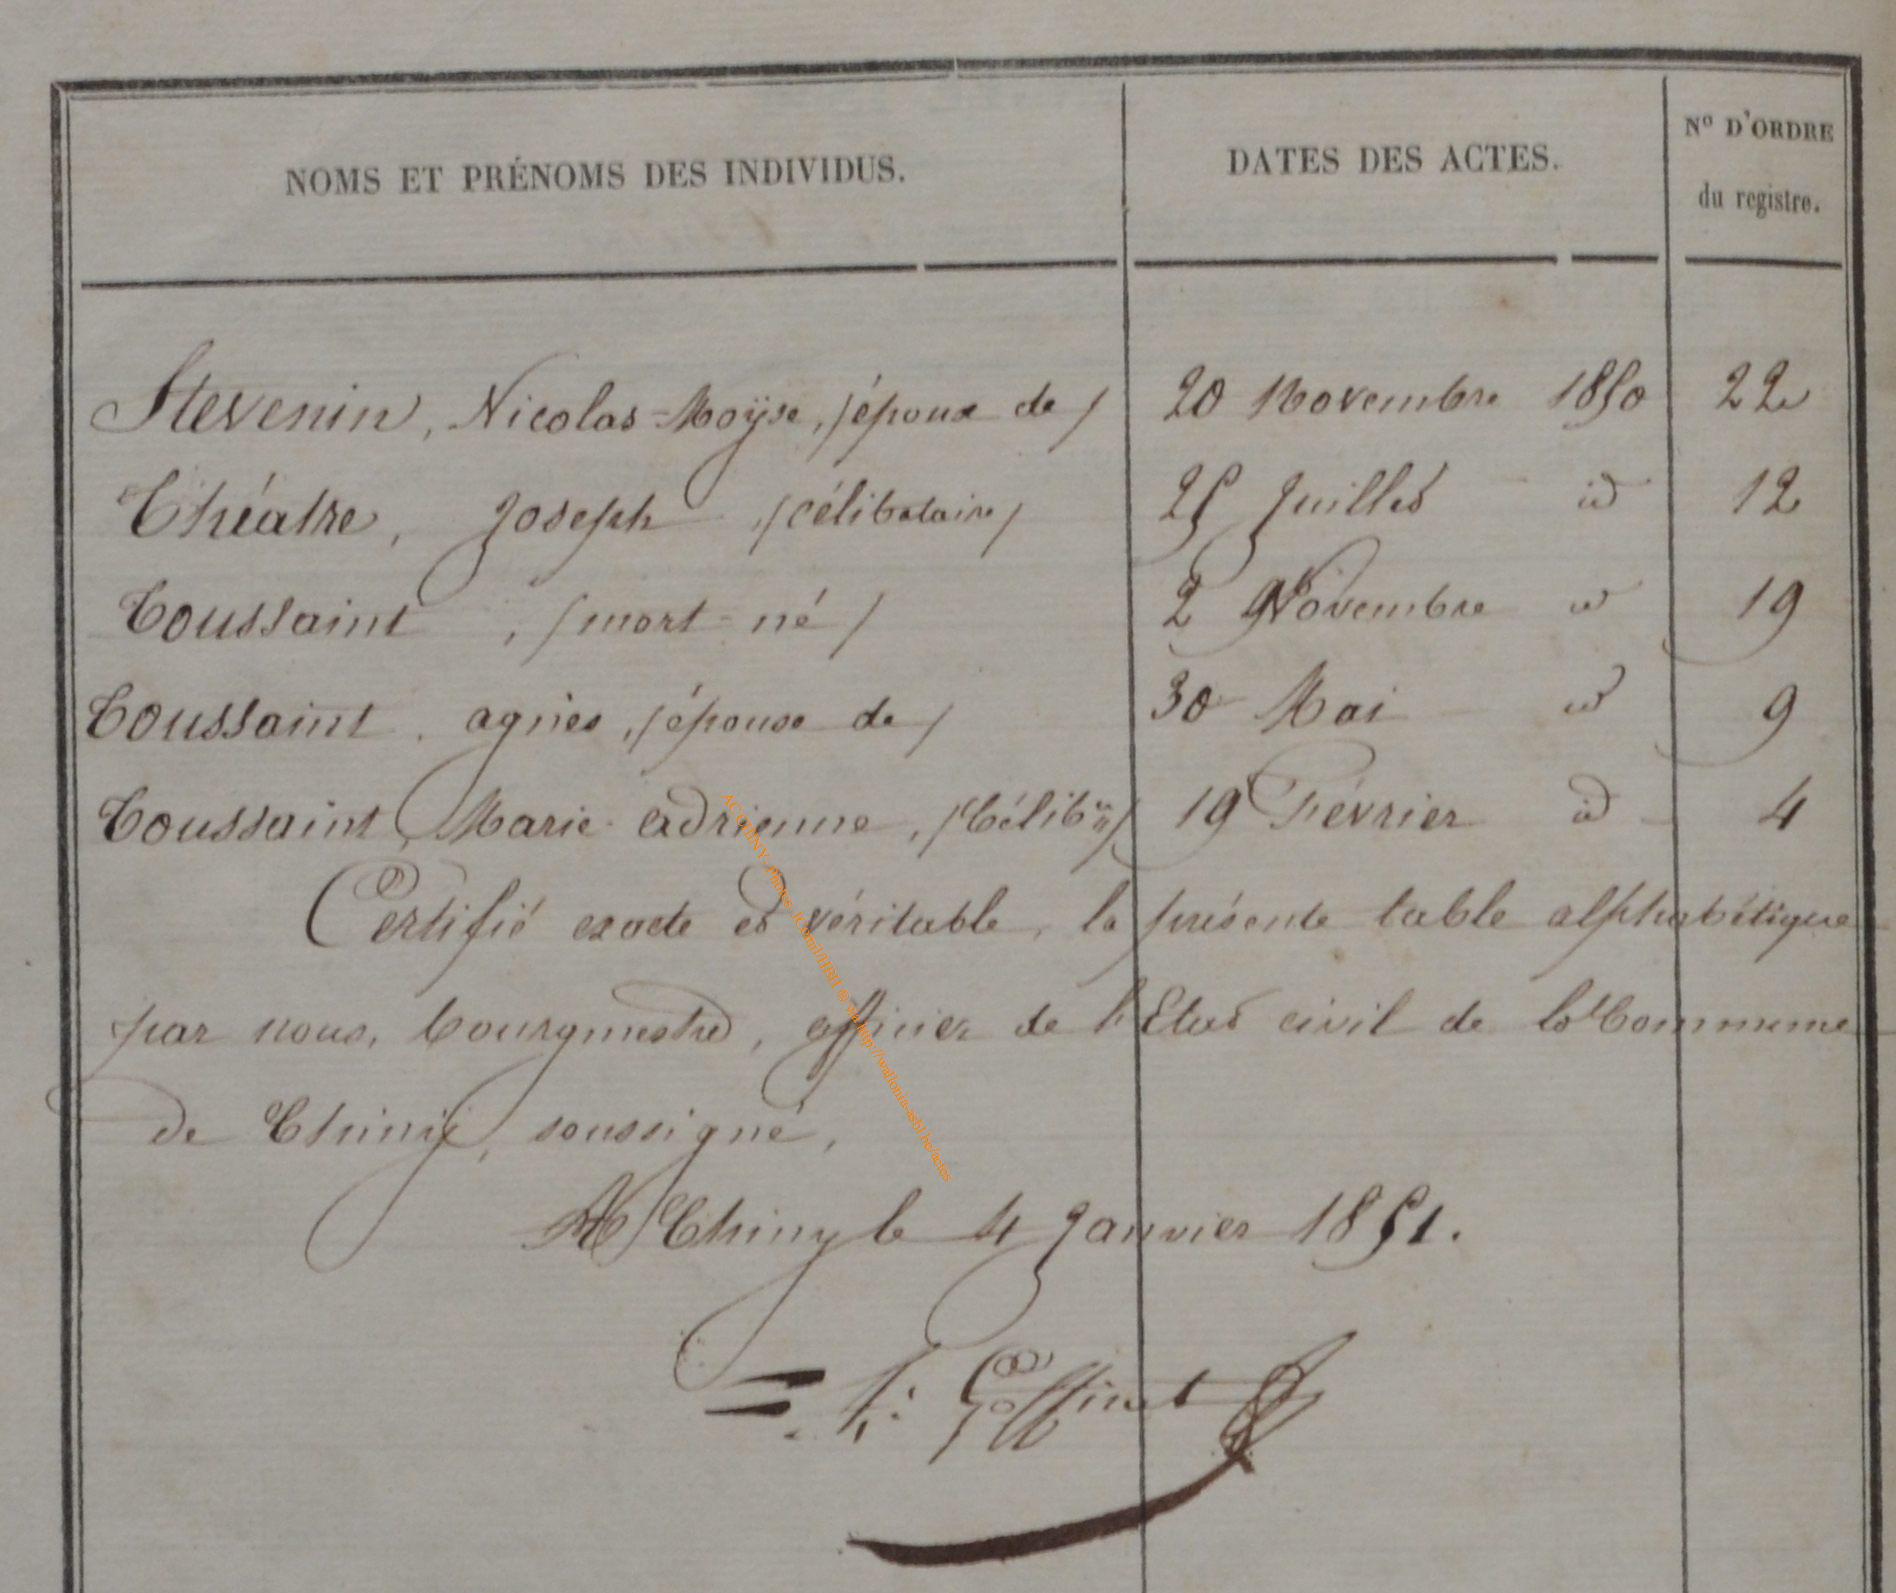 NOMS ET PRÉNOMS DES INDIVIDUS. DATES DES ACTES. Nº D'ORDRE
du registre.
Stevenin, Nicolas-Moÿse, /époux de/ 20 Novembre 1850 22
Théatre, Joseph /célibataire/ 25 Juillet id 12
Toussaint, /mort-né/ 2 Novembre id 19
Toussaint, agnès, /épouse de/ 30 Mai id 9
Toussaint, Marie adrienne, /Célib re/ 19 Février id 4
Certifié exacte et véritable, la présente table alphabétique
par nous, bourgmestre, officier de l'Etat civil de la Commune
de Chiny, soussigné,
A Chiny le 4 Janvier 1851.
Goffinet